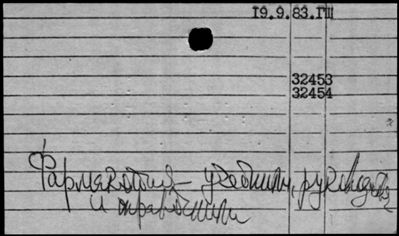 19.9.83.ГШ
32453
32454
Фармакопия — учебники, руководства
и справочники